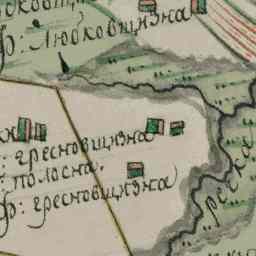 ф: Любковщизна
: гресновщизна
: полосна,
ф: гресновщизна
река